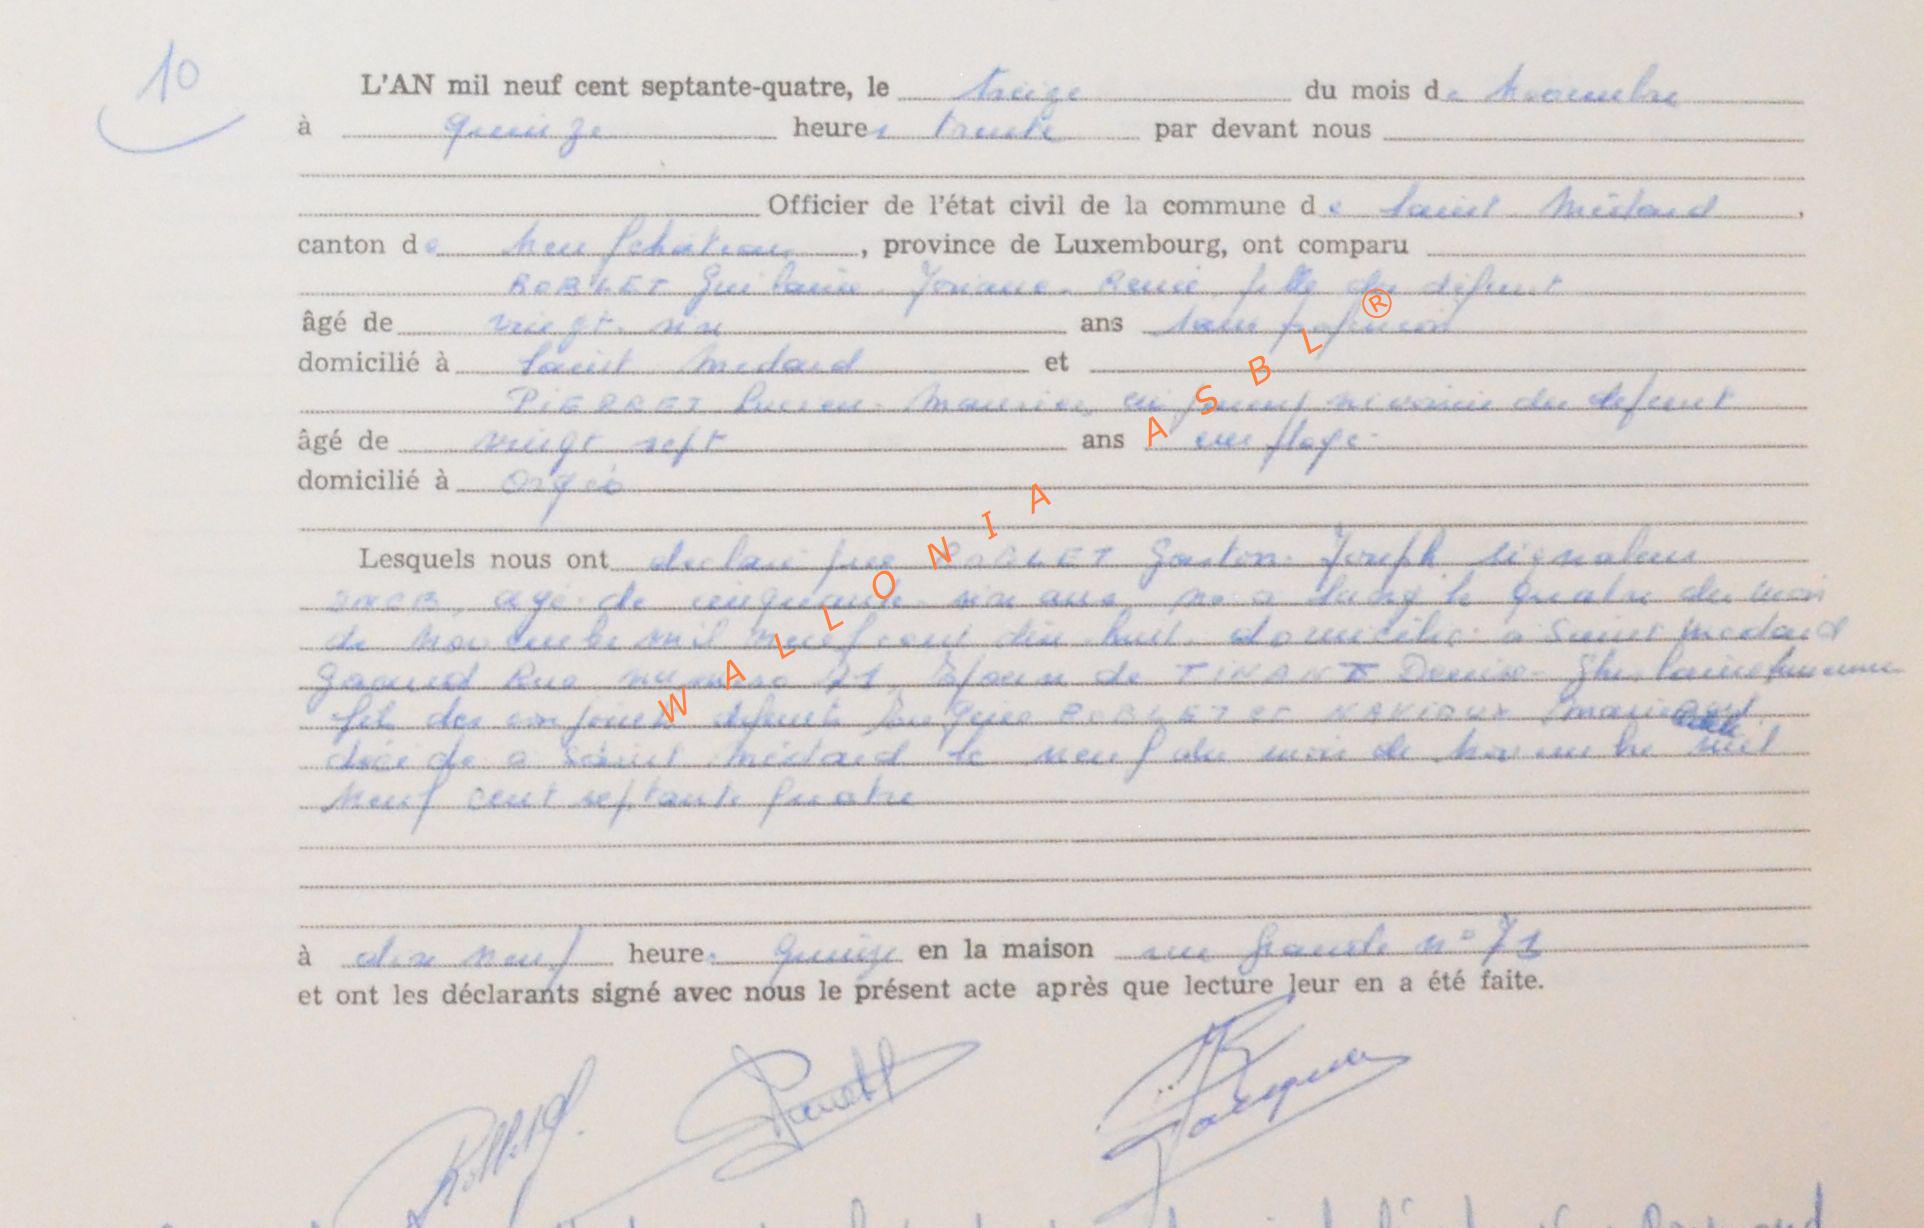 10
L'AN mil neuf cent septante-quatre, le treize du mois de Novembre
à quinze heures trente par devant nous
Officier de l'état civil de la commune de Saint Médard,
canton de Neufchâteau, province de Luxembourg, ont comparu
ROBLET Josiane Renée fille du défunt
âgé de vingt six ans sans profession
domicilié à Saint Medard et
PIERRET Lucien Maurice du defunt
âgé de vingt sept ans employé
domicilié à Orgéo
Lesquels nous ont declaré que ROBLET Gaston Joseph signaleur
SNCB, agé de cinquante six ans, né a le quatre du mois
de Novembre mil neuf cent dix huit domicilié a Saint Medard
Grand Rue numero 71, Epoux de TINANT Denise
fils des conjoints defunts ROBLET et
décédé a Saint Médard le neuf du mois de Novembre mil
neuf cent septante quatre
à dix neuf heures quinze en la maison rue Grande n° 71
et ont les déclarants signé avec nous le présent acte après que lecture leur en a été faite.
WALLONIA ASBL ®